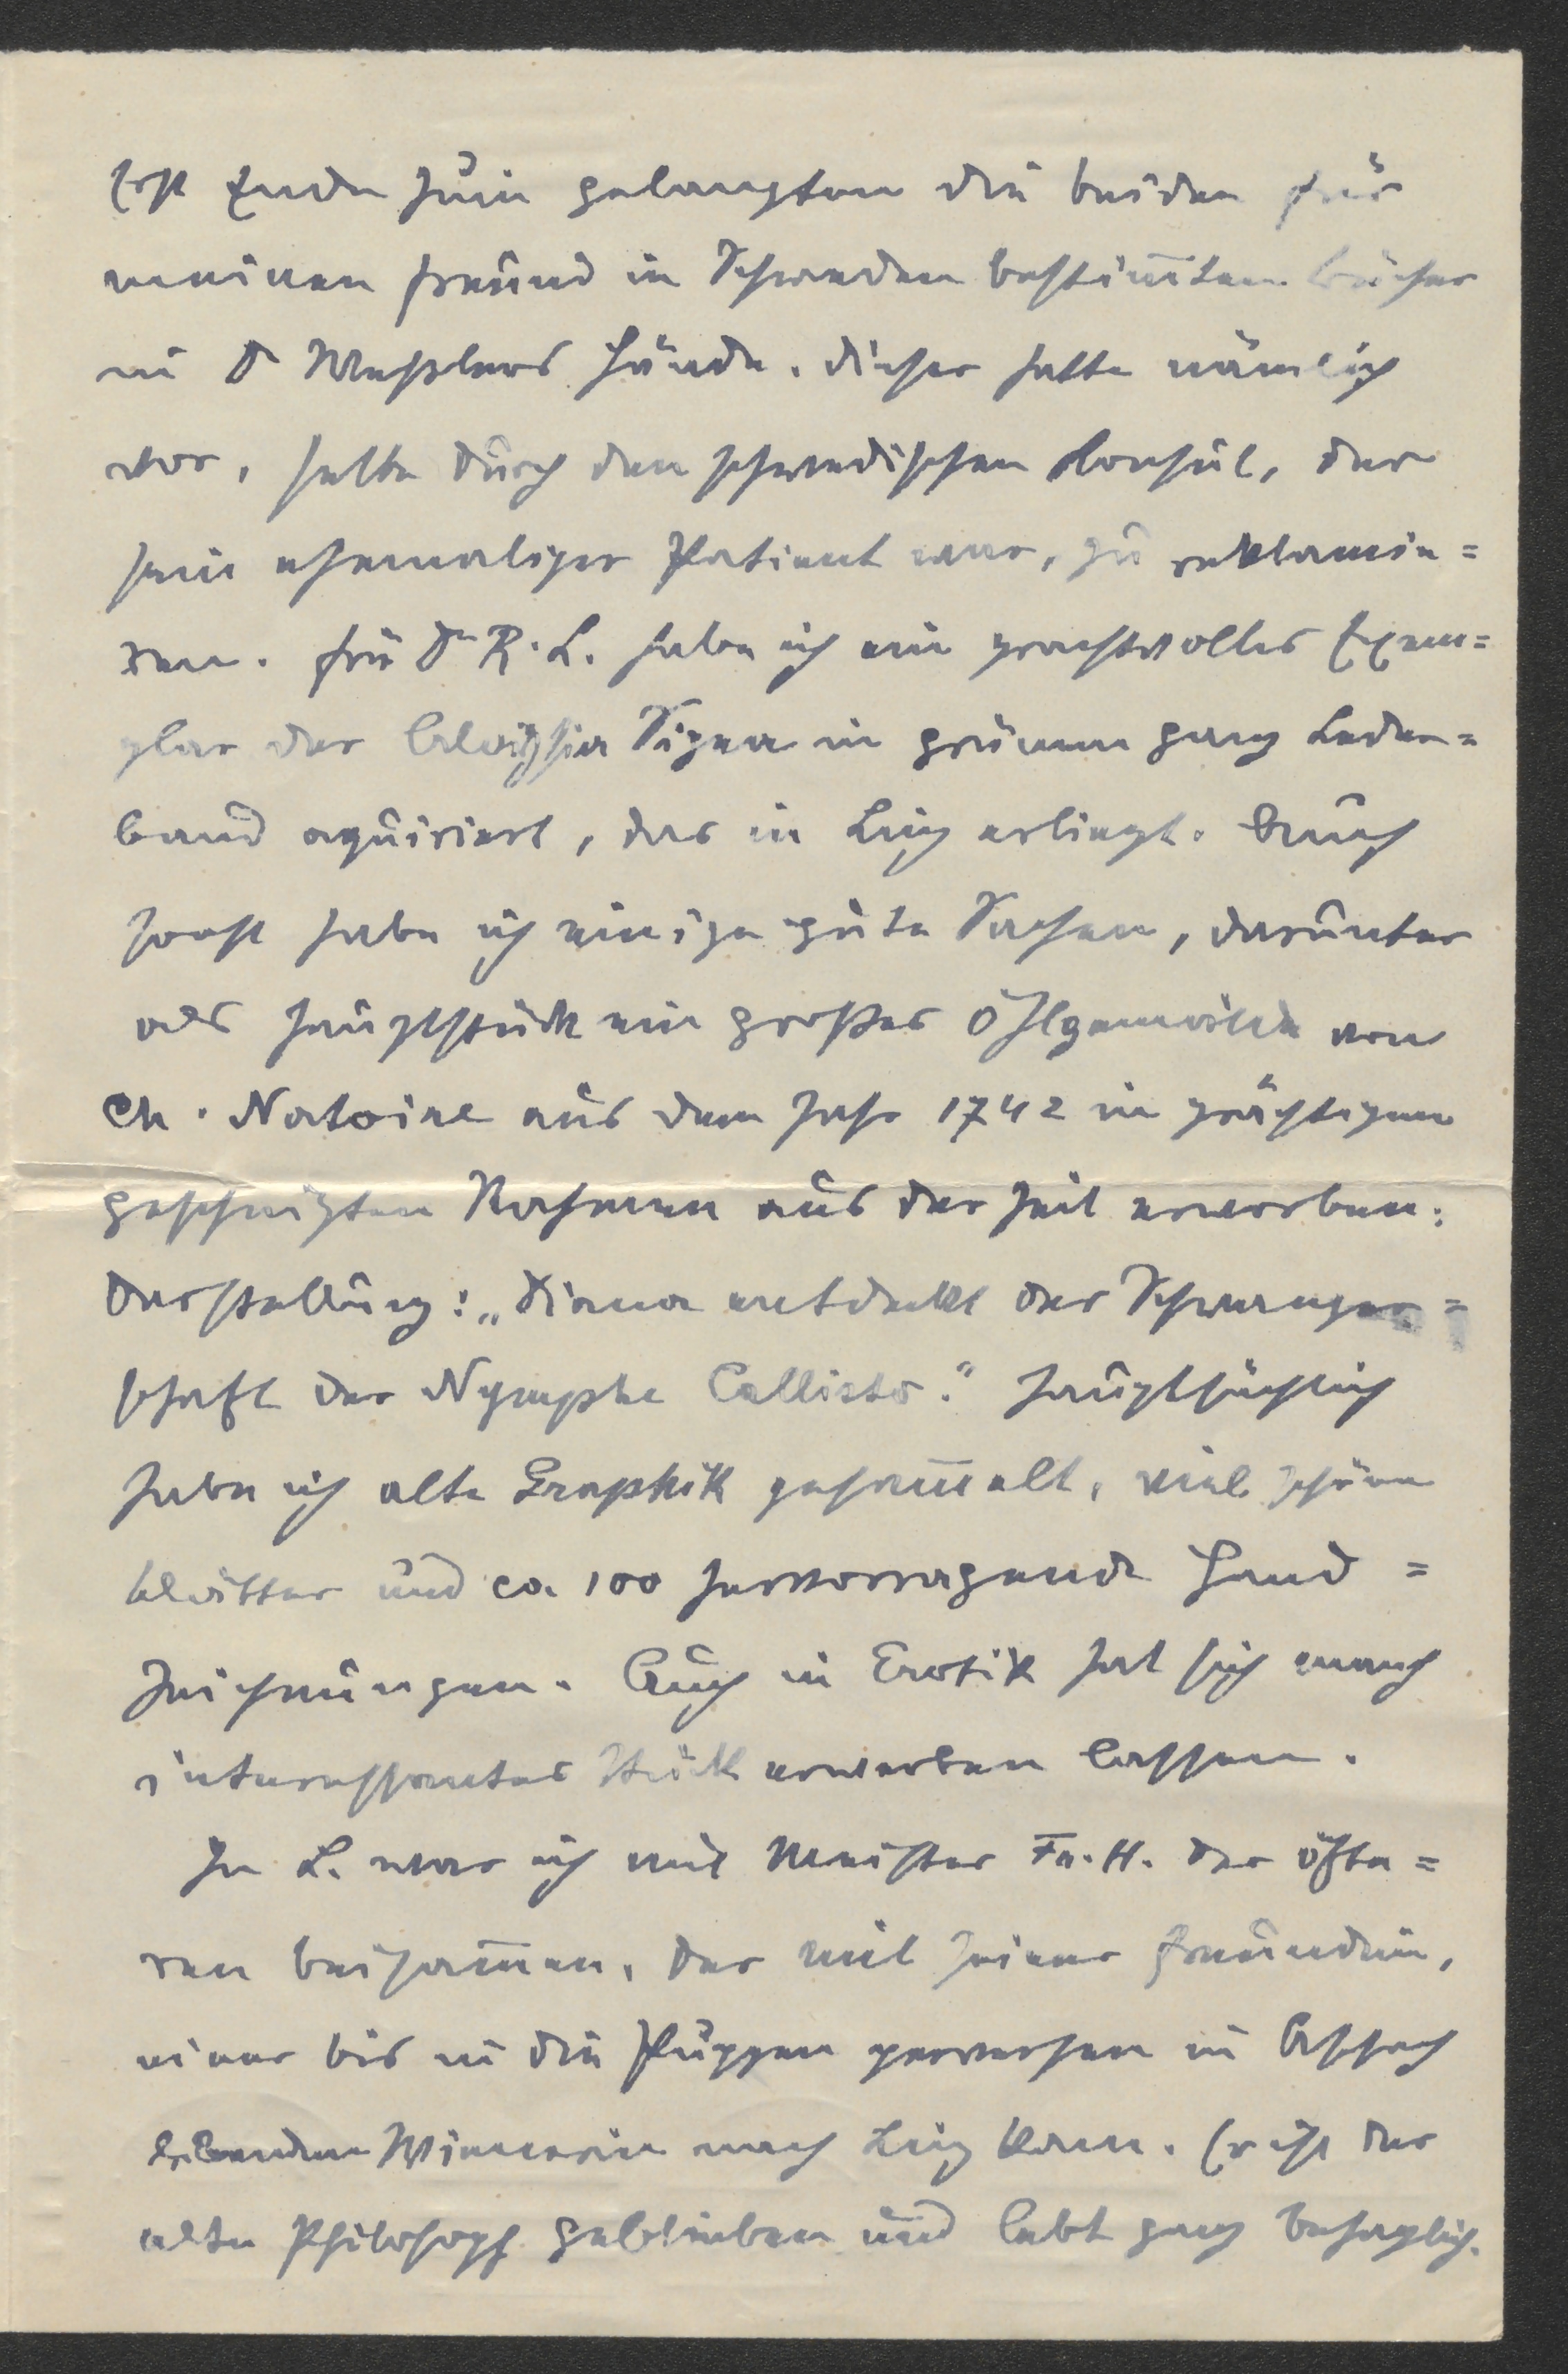 Erst Ende Juni gelangten die beiden für
meinen Freund in Schweden bestim̅ten Bücher
in Dr Wesslers Hände. Dieser hatte nämlich
vor, selbe durch den schwedischen Konsul, der
sein ehemaliger Patient war, zu reklamie=
ren. Für Dr R. L. habe ich ein prachtvolles Exem=
plar der Aloysia Sigea in grünem ganz Leder=
band aquiriert, das in Linz erliegt. Auch
sonst habe ich einige gute Sachen, darunter
als Hauptstück ein großes Öhlgemälde von
Ch. Natoire aus dem Jahr 1742 in prächtigem
geschnizten Rahmen aus der Zeit erworben:
Darstellung: „Diana entdeckt der Schwanger=
schaft der Nymphe Callisto." Hauptsächlich
habe ich alte Graphik gesam̅elt, viel schöne
Blätter und ca 100 hervorragende Hand=
zeichnungen. Auch in Erotik hat sich manch
interessantes Stück erwerben lassen.
In L. war ich mit Meister Fr. H. des öfte=
ren beisam̅en, der mit seiner Freundin,
einer bis in die Puppen perversen in Aschach
lebenden Wienerin nach Linz kam. Er ist der
alte Philosoph geblieben und lebt ganz behaglich.